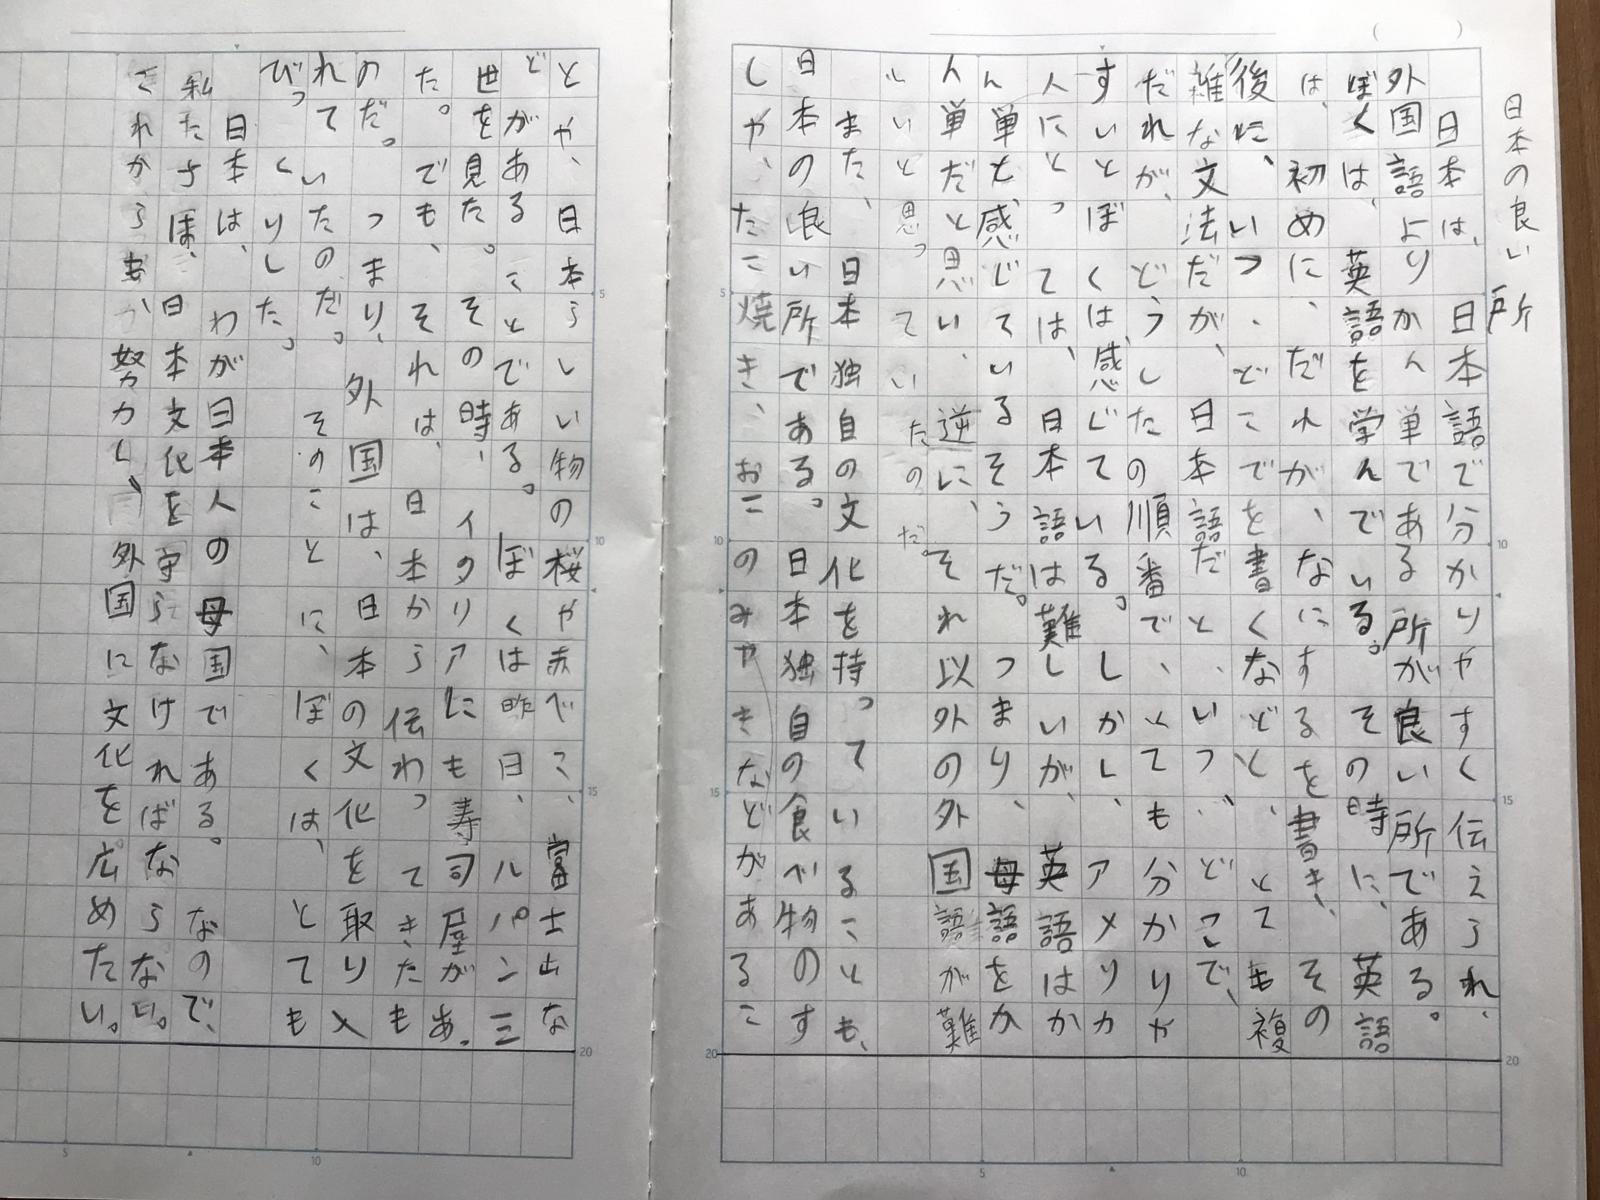 日本の良い所
日本は、日本語で分かりやすく伝えられ、
外国語よりかん単である所が良い所である。
ぼくは、英語を学んでいる。その時に、英語
は、初めに、だれが、なにするを書き、その
後に、いつ、どこでを書くなどと、とても複
雑な文法だが、日本語だと、いつ、どこで、
だれが、どうしたの順番で、とても分かりや
すいとぼくは感じている。しかし、アメリカ
人にとっては、日本語は難しいが、英語はか
ん単と感じているそうだ。つまり、母語をか
ん単だと思い、逆に、それ以外の外国語が難
しいと思っていたのだ。
また、日本独自の文化を持っていることも、
日本の良い所である。日本独自の食べ物のす
しや、たこ焼き、おこのみやきなどがあるこ
とや、日本らしい物の桜や赤べこ、富士山な
どがあることである。ぼくは昨日、ルパン三
世を見た。その時、イタリアにも寿司屋があっ
た。でも、それは、日本から伝わってきたも
のだ。つまり、外国は、日本の文化を取り入
れていたのだ。そのことに、ぼくは、とても
びっくりした。
日本は、わが日本人の母国である。なので、
私たちは、日本文化を守らなければならない。
これからも、努力し、外国に文化を広めたい。
5
10
15
20
5
10
5
10
15
20
5
10